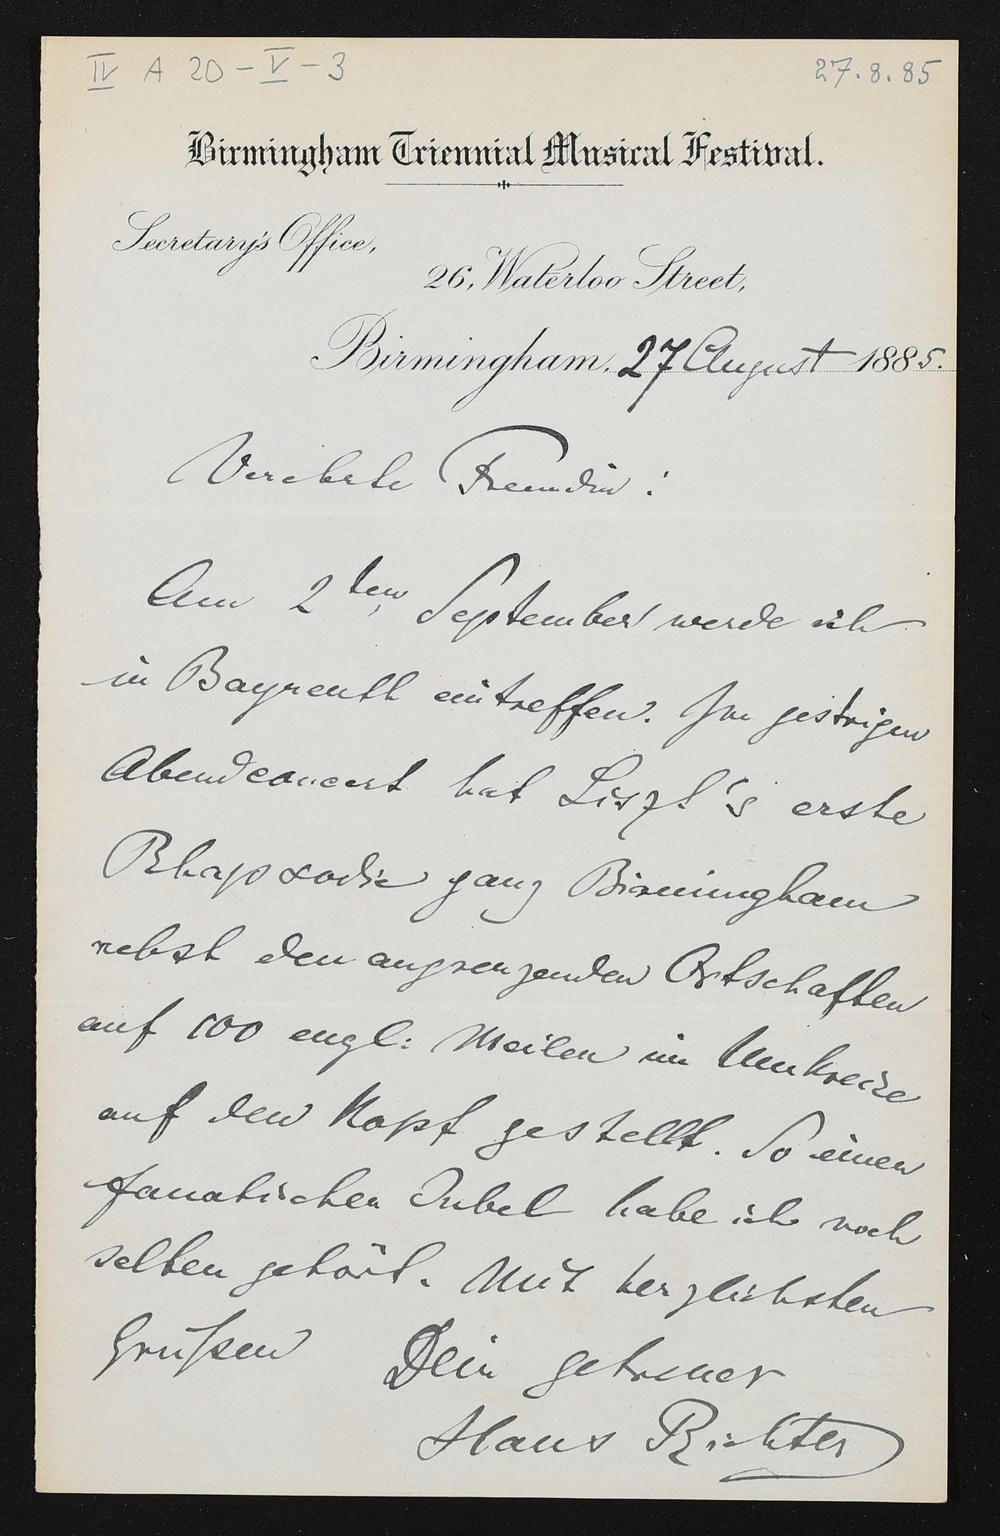 IV A 20-V-3
27.8.85
Birmingham Triennial Musical Festival.
Secretary's Office,
26, Waterloo Street,
Birmingham, 27 August 1885.
Verehrte Freundin:
Am 2ten September werde ich
in Bayreuth eintreffen. Im gestrigen
Abendconcert hat Liszt's erste
Rhapsodie ganz Birmingham
nebst den angrenzenden Ortschaften
auf 100 engl: Meilen im Umkreise
auf den Kopf gestellt. So einen
fanatischen Jubel habe ich noch
selten gehört. Mit herzlichsten
Grüßen Dein getreuer
Hans Richter